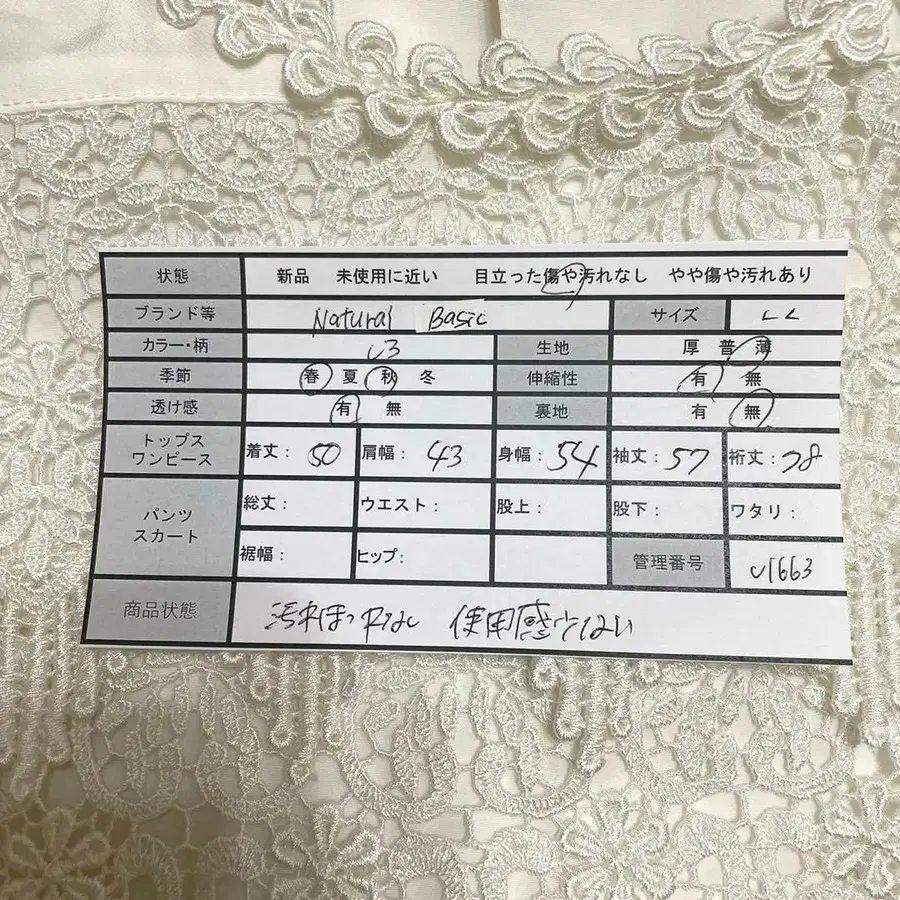 状態 新品 未使用に近い 目立った傷や汚れなし やや傷や汚れあり
ブランド等 Natural Basic サイズ LL
カラー・柄 しろ 生地 厚 普 薄
季節 春 夏 秋 冬 伸縮性 有 無
透け感 有 無 裏地 有 無
トップス
ワンピース
着丈: 50 肩幅: 43 身幅: 54 袖丈: 57 裄丈: 78
パンツ
スカート
総丈: ウエスト: 股上: 股下: ワタリ:
裾幅: ヒップ: 管理番号 U1663
商品状態 汚れほつれなし 使用感少ない